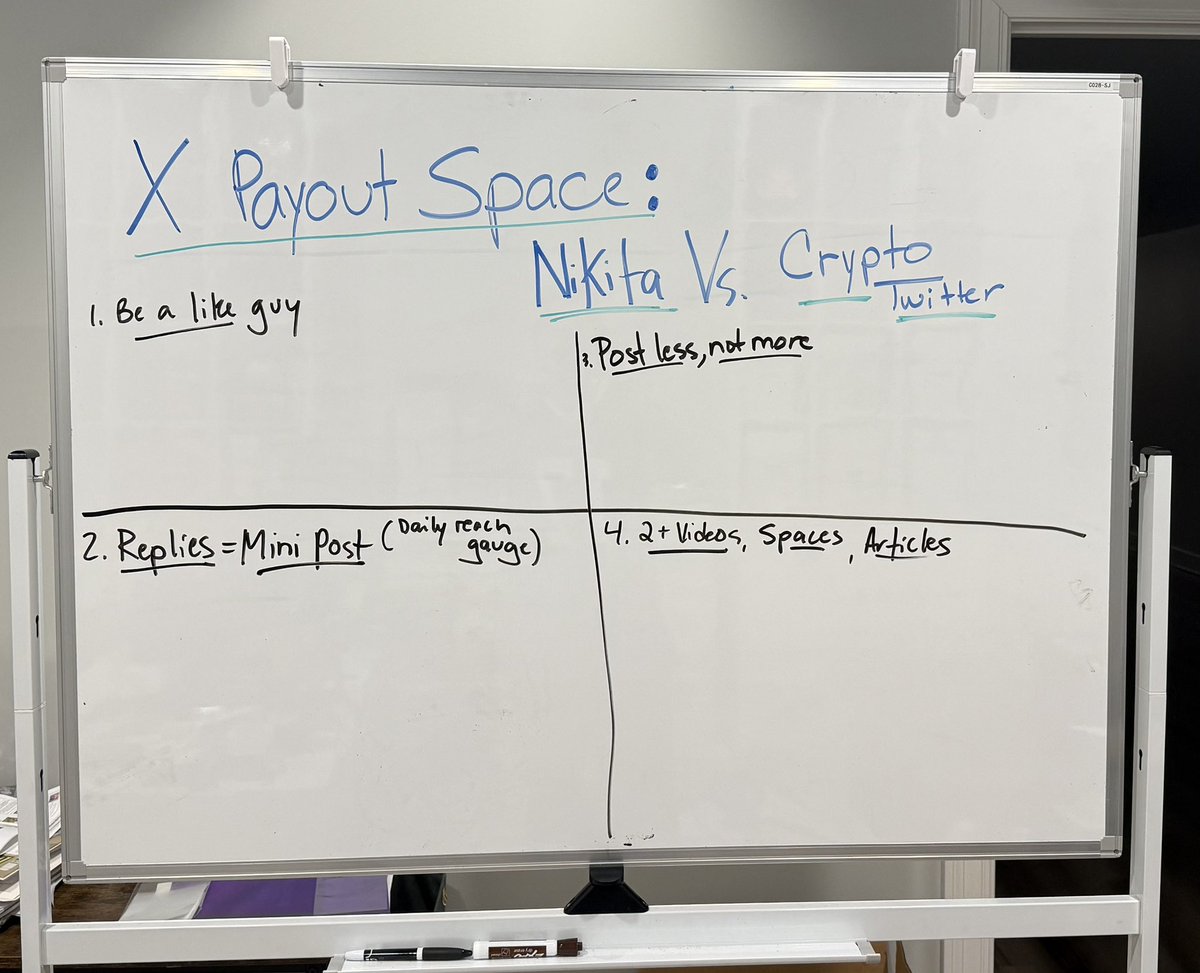 X Payout Space:
Nikita Vs. Crypto
Twitter
1. Be a like guy
3. Post less, not more
2. Replies = Mini Post (Daily reach
gauge)
4. 2+ Videos, Spaces, Articles